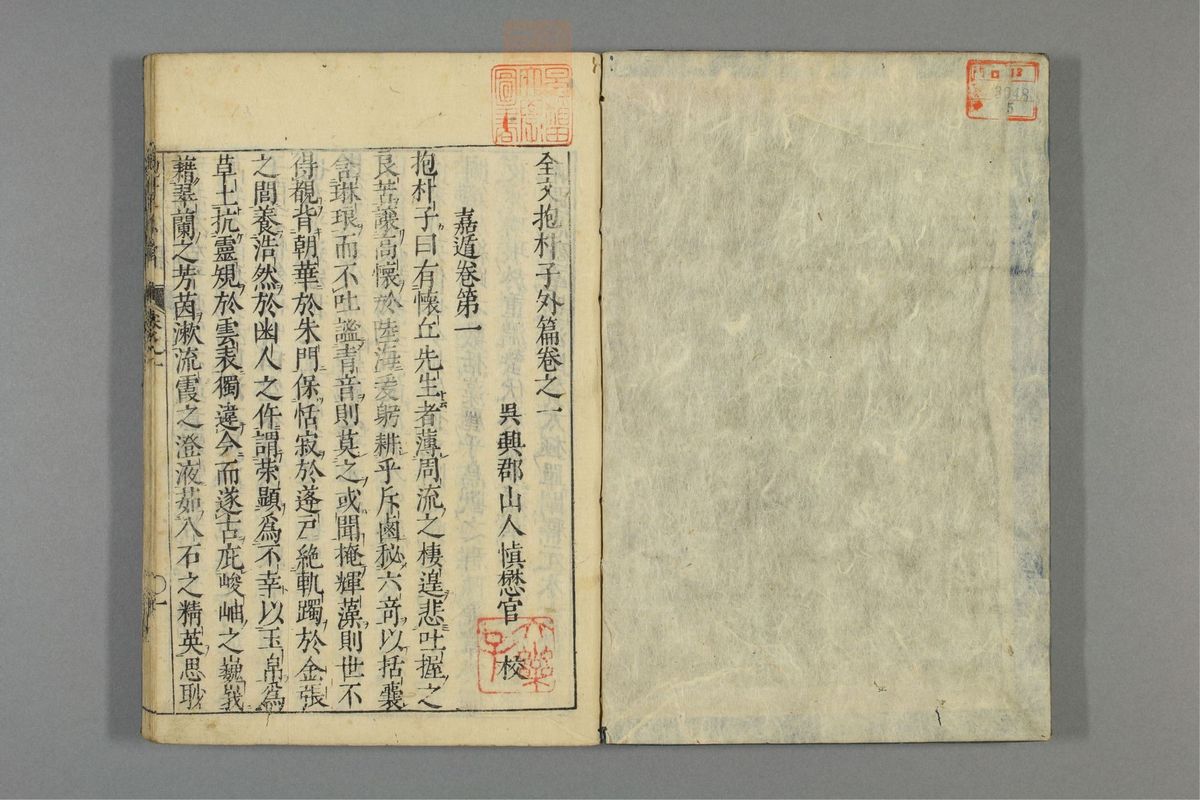 全文抱朴子外篇卷之一
吳興郡山人愼懋官 校
嘉遁卷第一
抱朴子曰有懷丘先生者薄周流之棲遑悲吐握之
良苦讓高㦗於陸海爰躬耕乎斥鹵秘六奇以括囊
含琳琅而不吐謐清音則莫之或聞掩輝藻則世不
得覩背朝華於朱門保恬寂於蓬戸絶軌躅於金張
之閭養浩然於幽人之仵謂榮顯爲不幸以玉帛爲
草土抗靈規於雲表獨違今而遂古庇峻岫之巍峩
藉翠蘭之芳茵漱流霞之澄液茹八石之精英思眇
3948
5